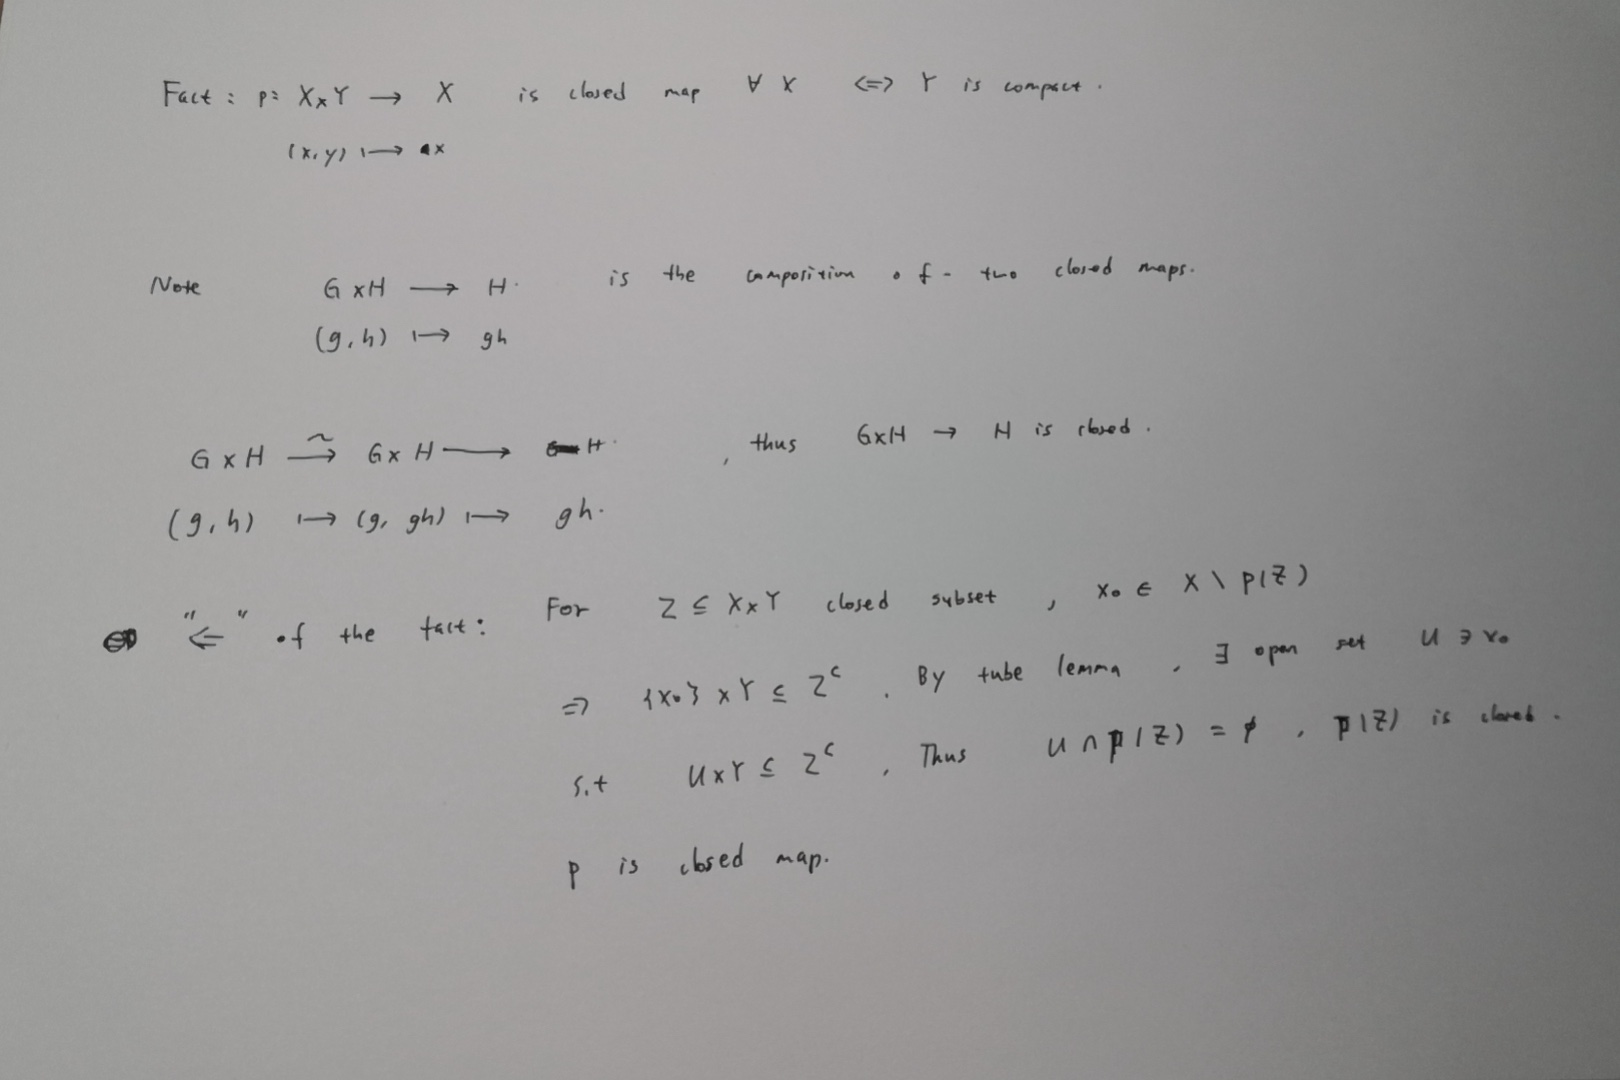 Fact : p: X×Y → X is closed map ∀ X <=> Y is compact .
(x,y) ↦ x
Note G×H → H . is the composition of two closed maps.
(g,h) ↦ gh
G×H ⥲ G×H → H . , thus G×H → H is closed .
(g,h) ↦ (g, gh) ↦ gh.
"⇐" of the fact : For Z ⊆ X×Y closed subset , x₀ ∈ X \ p(Z)
=> {x₀} × Y ⊆ Zᶜ . By tube lemma , ∃ open set U ∋ x₀
s.t U×Y ⊆ Zᶜ , Thus U ∩ p(Z) = ∅ , p(Z) is closed .
p is closed map.